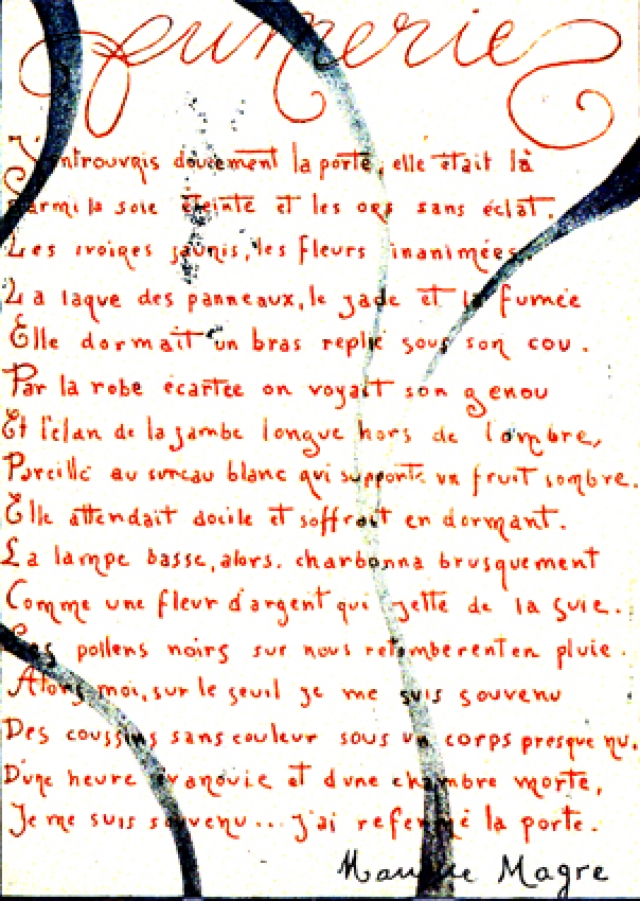 Fumerie
J'entrouvris doucement la porte, elle était là
Parmi la soie éteinte et les ors sans éclat.
Les ivoires jaunis, les fleurs inanimées.
La laque des panneaux, le jade et la fumée
Elle dormait un bras replié sous son cou.
Par la robe écartée on voyait son genou
Et l'élan de la jambe longue hors de l'ombre,
Pareille au sureau blanc qui supporte un fruit sombre.
Elle attendait docile et s'offrait en dormant.
La lampe basse, alors. charbonna brusquement
Comme une fleur d'argent qui jette de la suie.
Les pollens noirs sur nous retomberent en pluie.
Alors moi, sur le seuil je me suis souvenu
Des coussins sans couleur sous un corps presque nu.
D'une heure évanouie et d'une chambre morte,
Je me suis souvenu... j'ai refermé la porte.
Maurice Magre